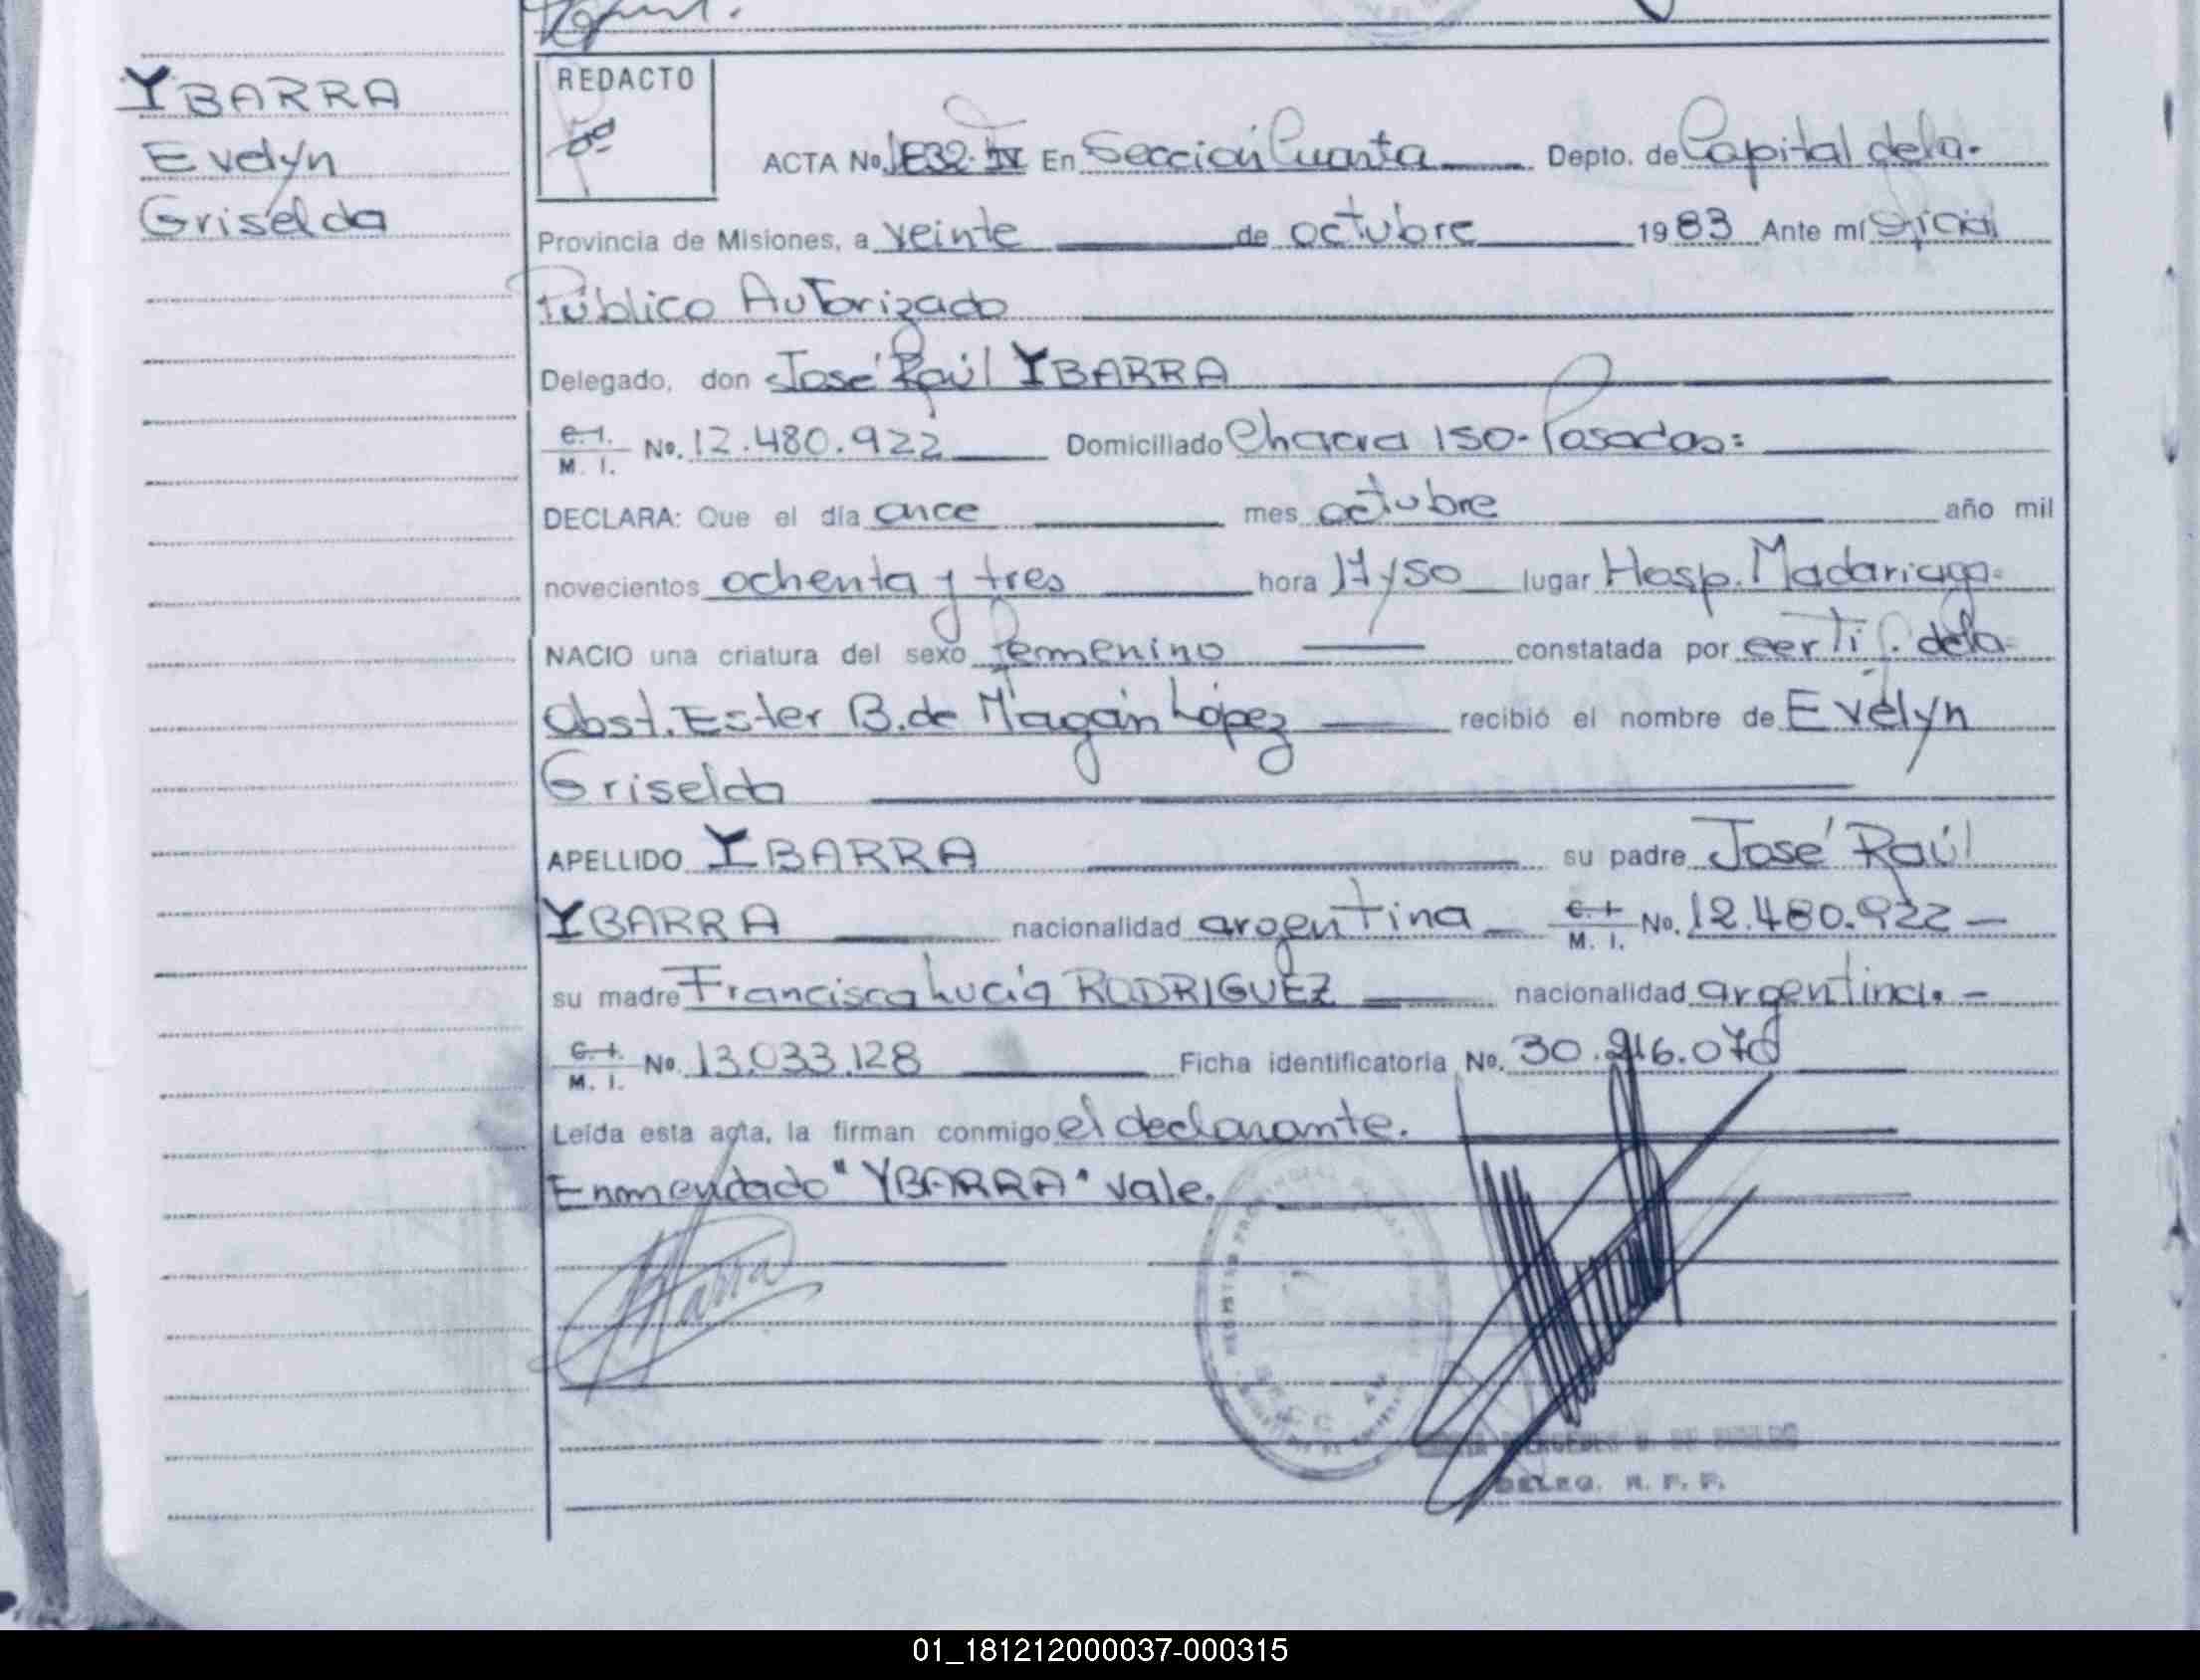 YBARRA
Evelyn
Griselda
REDACTO
ACTA No. 1832-IV En Sección Cuarta Depto. de Capital de la
Provincia de Misiones, a veinte de octubre 1983 Ante mí Oficial
Público Autorizado
Delegado, don José Raúl YBARRA
C. I. M. I. No. 12.480.922 Domiciliado Chacra 150-Posadas:
DECLARA: Que el día once mes octubre año mil
novecientos ochenta y tres hora 17y50 lugar Hosp. Madariaga-
NACIO una criatura del sexo femenino constatada por certif. de la
Obst. Ester B. de Magán López recibió el nombre de Evelyn
Griselda
APELLIDO YBARRA su padre José Raúl
YBARRA nacionalidad argentina C. I. M. I. No. 12.480.922 —
su madre Francisca Lucía RODRIGUEZ nacionalidad argentina. -
C. I. M. I. No. 13.033.128 Ficha identificatoria No. 30.216.070
Leída esta acta, la firman conmigo el declarante.
Enmendado "YBARRA" vale.
DELEG. R. P. P.
01_181212000037-000315